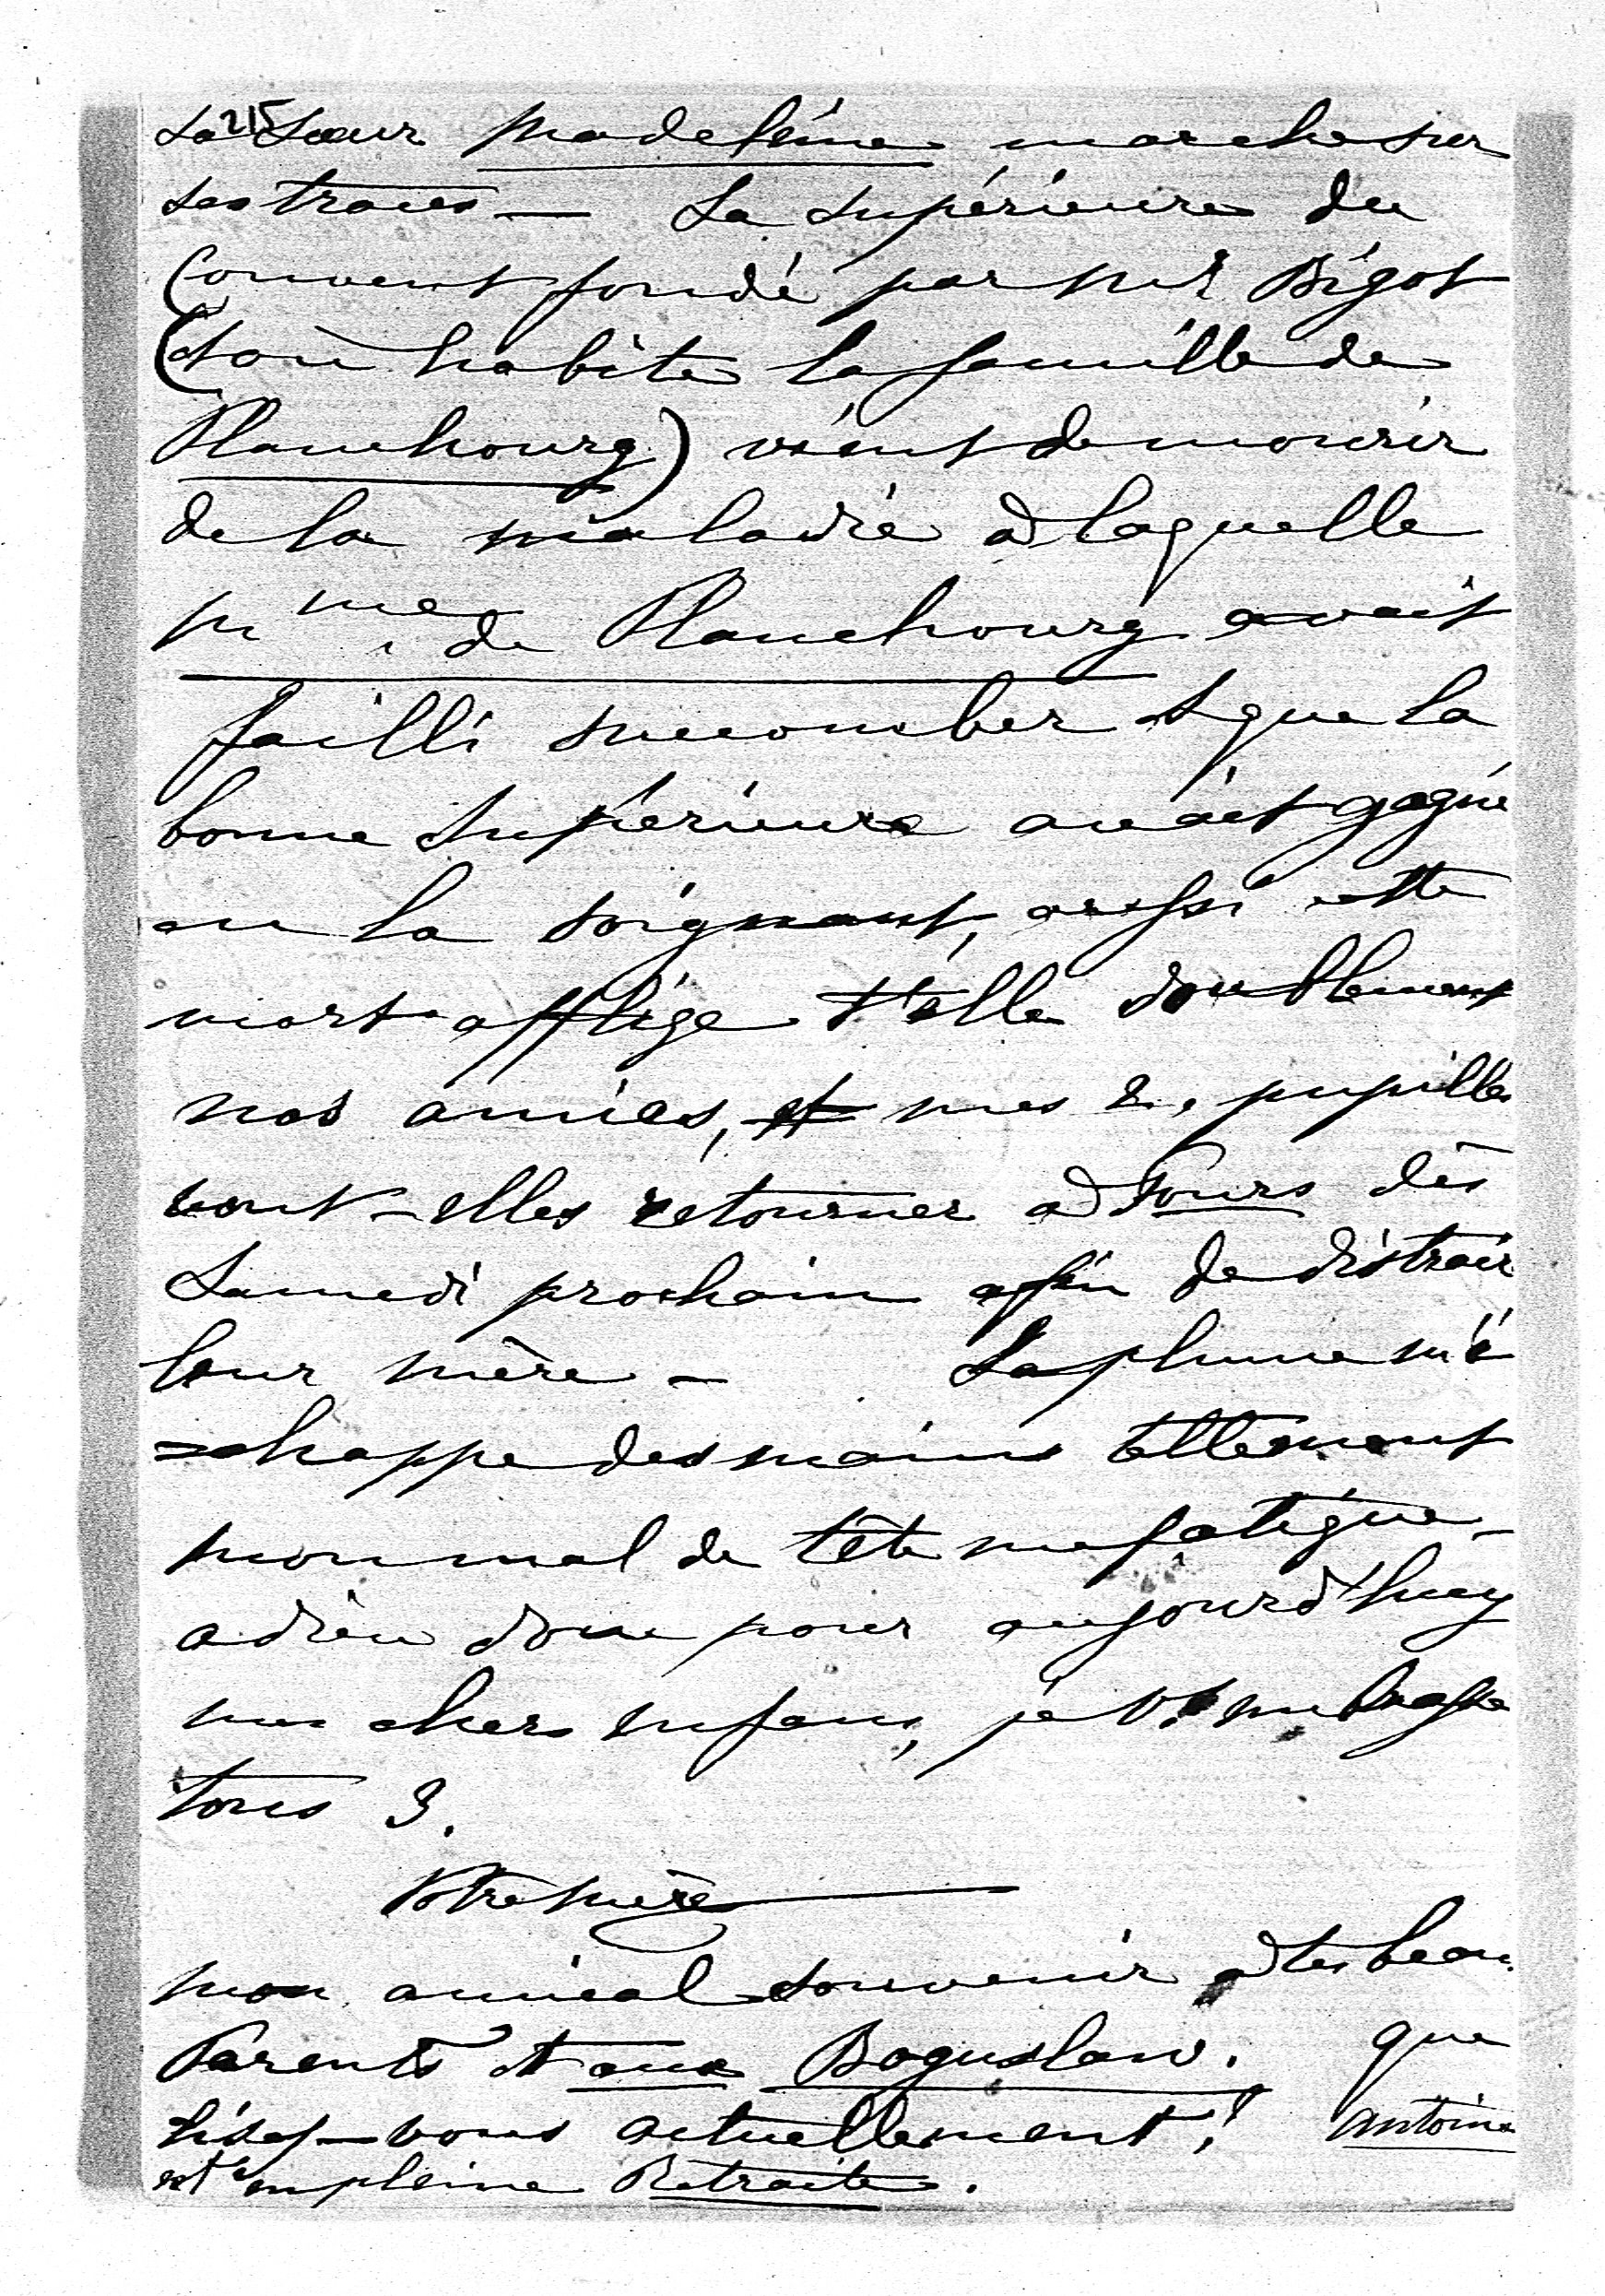 215
Sa Sœur Madeleine marche sur
ses traces — La Supérieure du
Couvent fondé par Mr Bigot
(où habite la famille de
Planchourg) vient de mourir
de la maladie à laquelle
Mme de Planchourg avait
failli succomber & que la
bonne Supérieure avait gagné
en la soignant, aussi cette
mort afflige t'elle doublement
nos amies, et mes 2. pupilles
vont-elles retourner à Tours dès
Samedi prochain afin de distraire
leur mère — La plume m'é
=chappe des mains tellement
mon mal de tête me fatigue —
adieu donc pour aujourd'huy
mes chers enfans, je vs embrasse
tous 3.
Votre mère
mon amical souvenir à tes beau.
Parents et aux Boguslaw. que
lisez-vous actuellement? Antoine
est en pleine Retraite.